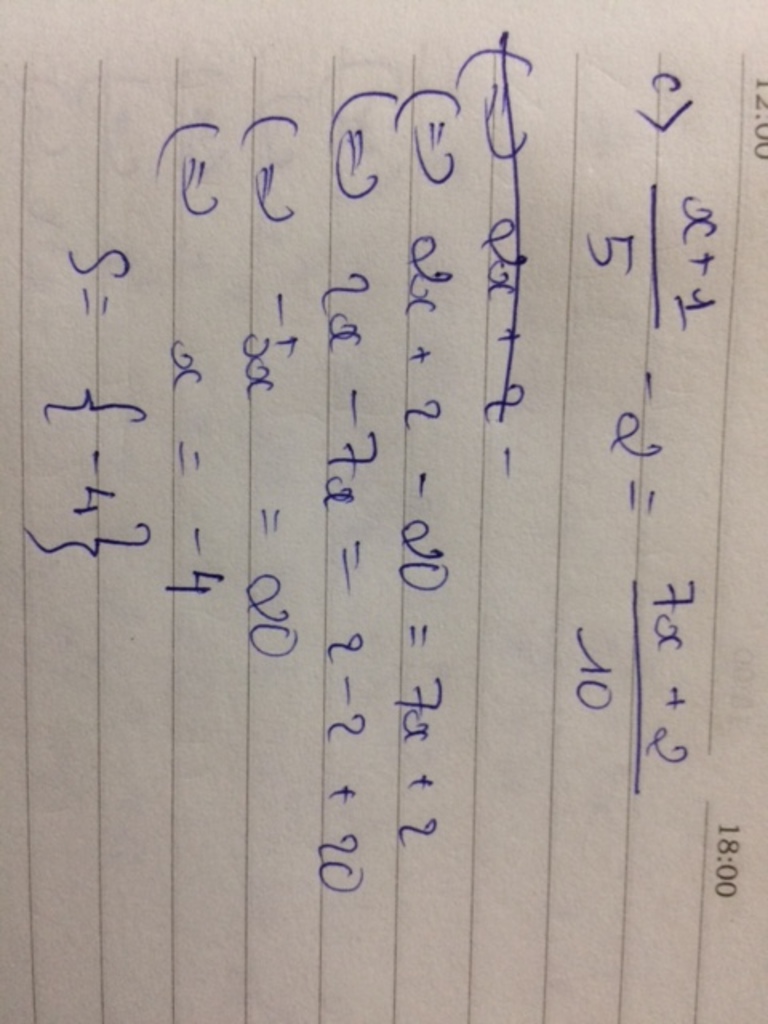 12:00
18:00
c) x+1/5 - 2 = 7x+2/10
(=) 2x + 2 -
(=) 2x + 2 - 20 = 7x + 2
(=) 2x - 7x = 2 - 2 + 20
(=) -5x = 20
(=) x = -4
S = {-4}